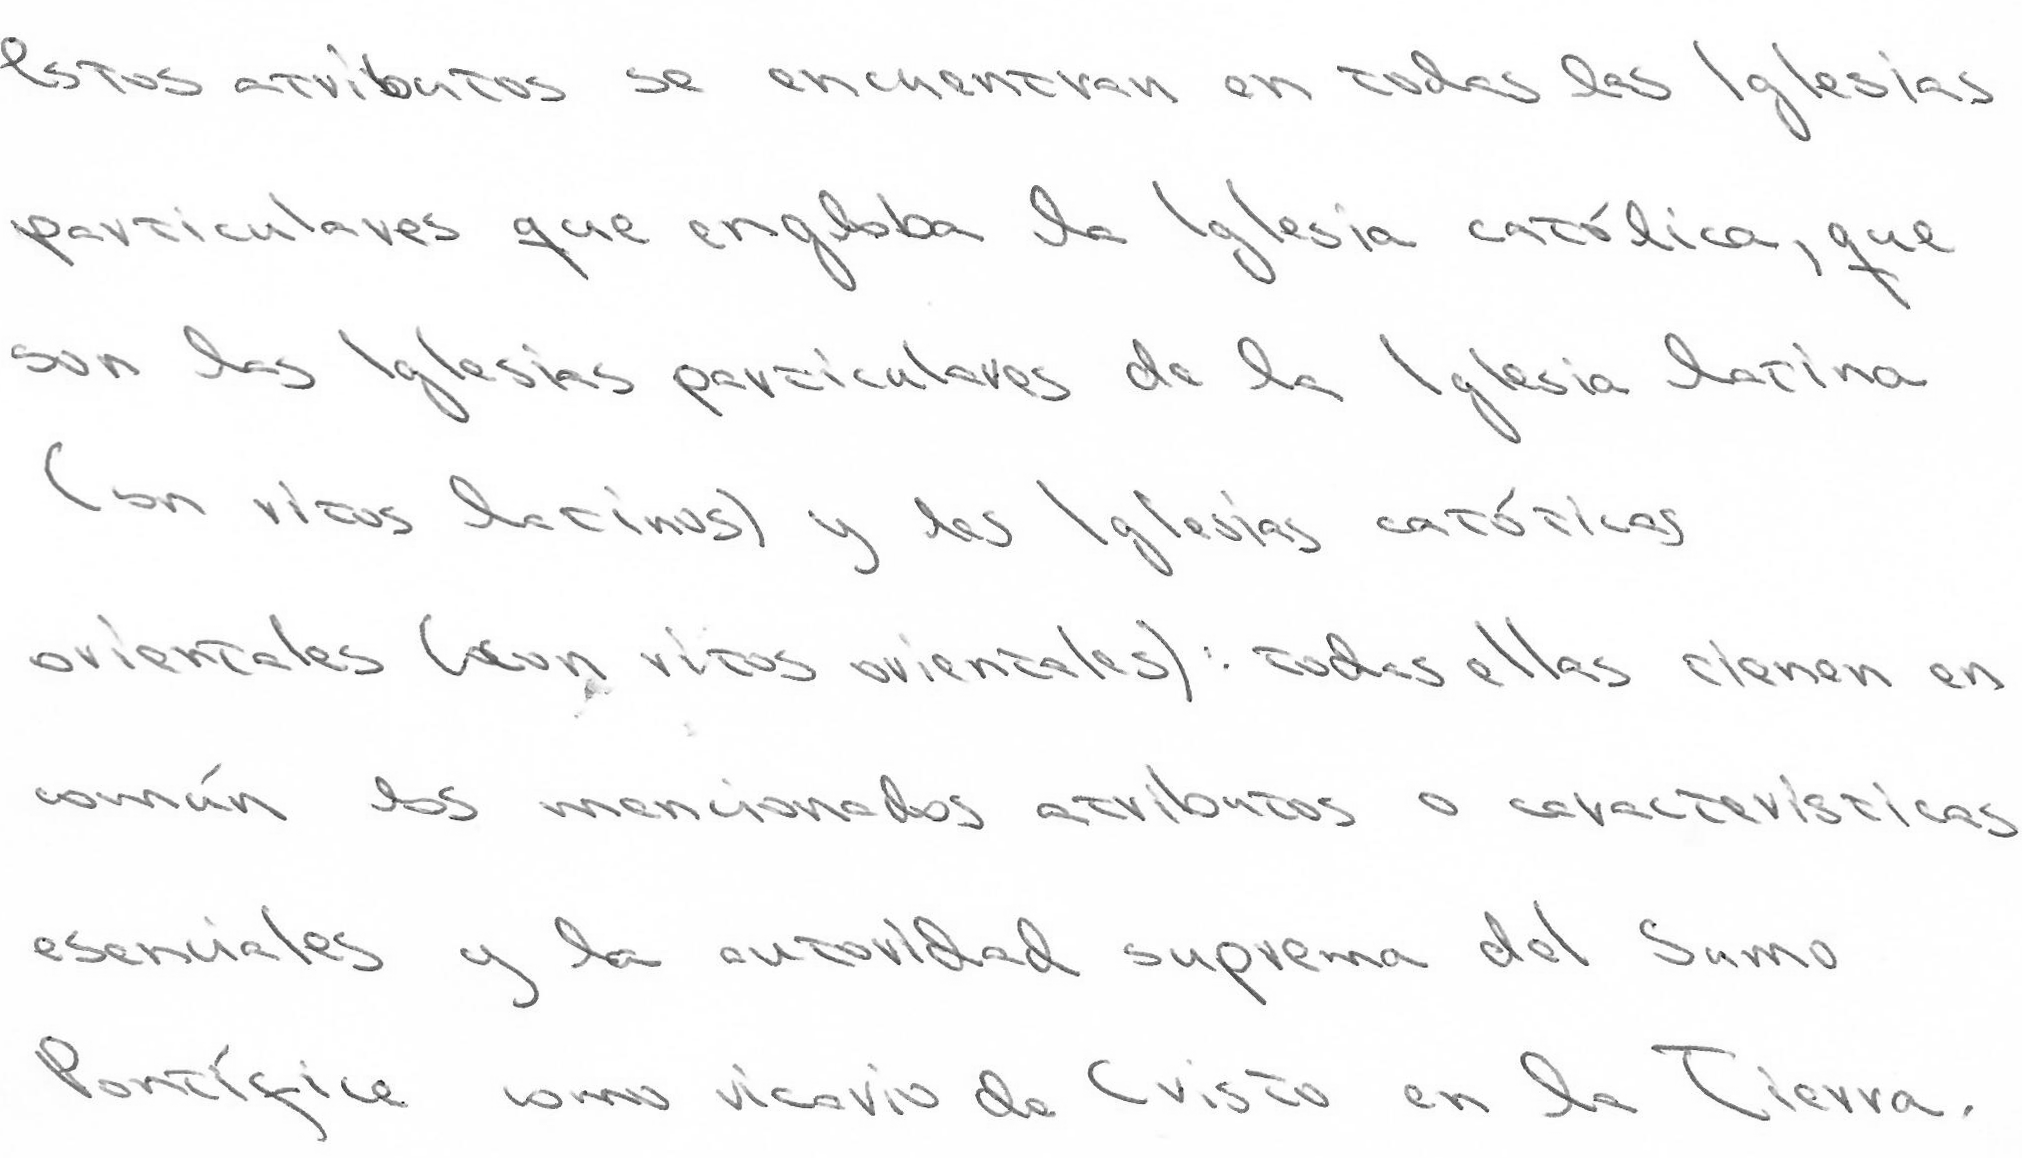 Estos atributos se encuentran en todas las Iglesias
particulares que engloba la Iglesia católica, que
son las Iglesias particulares de la Iglesia latina
(con ritos latinos) y las Iglesias catóticas
orientales (con ritos orientales): todas ellas tienen en
común los mencionados atributos o características
esenciales y la autoridad suprema del Sumo
Pontífice como vicario de Cristo en la Tierra.